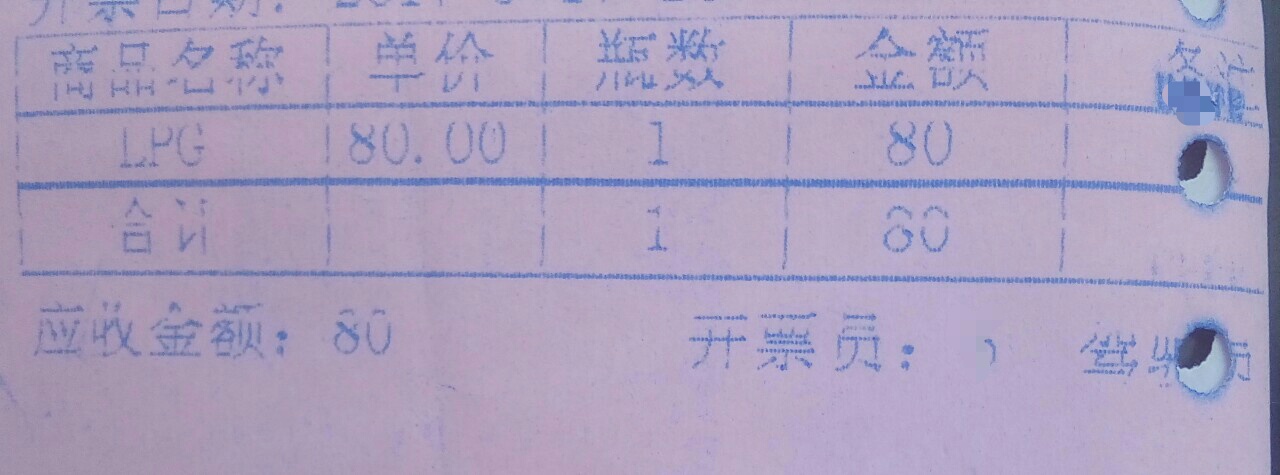 开票日期：
商品名称 单价 瓶数 金额 备注
LPG 80.00 1 80
合计 1 80
应收金额：80 开票员：